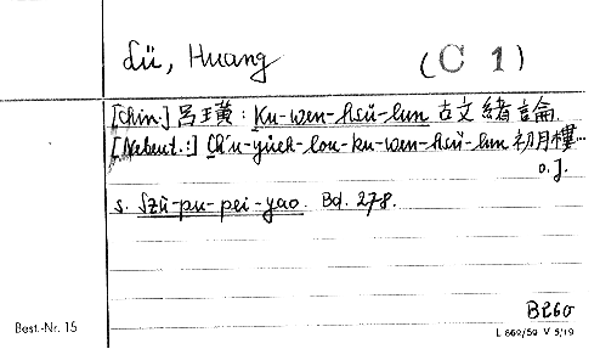 Lü, Huang (C 1)
[Chin.] 呂璜: Ku-wen-hsü-lun 古文緒論.
[Nebent.:] Ch'u-yüeh-lou-ku-wen-hsü-lun 初月樓...
o.J.
s. Szŭ-pu-pei-yao. Bd. 278.
B260
Best.-Nr. 15 L 669/59 V 5/19